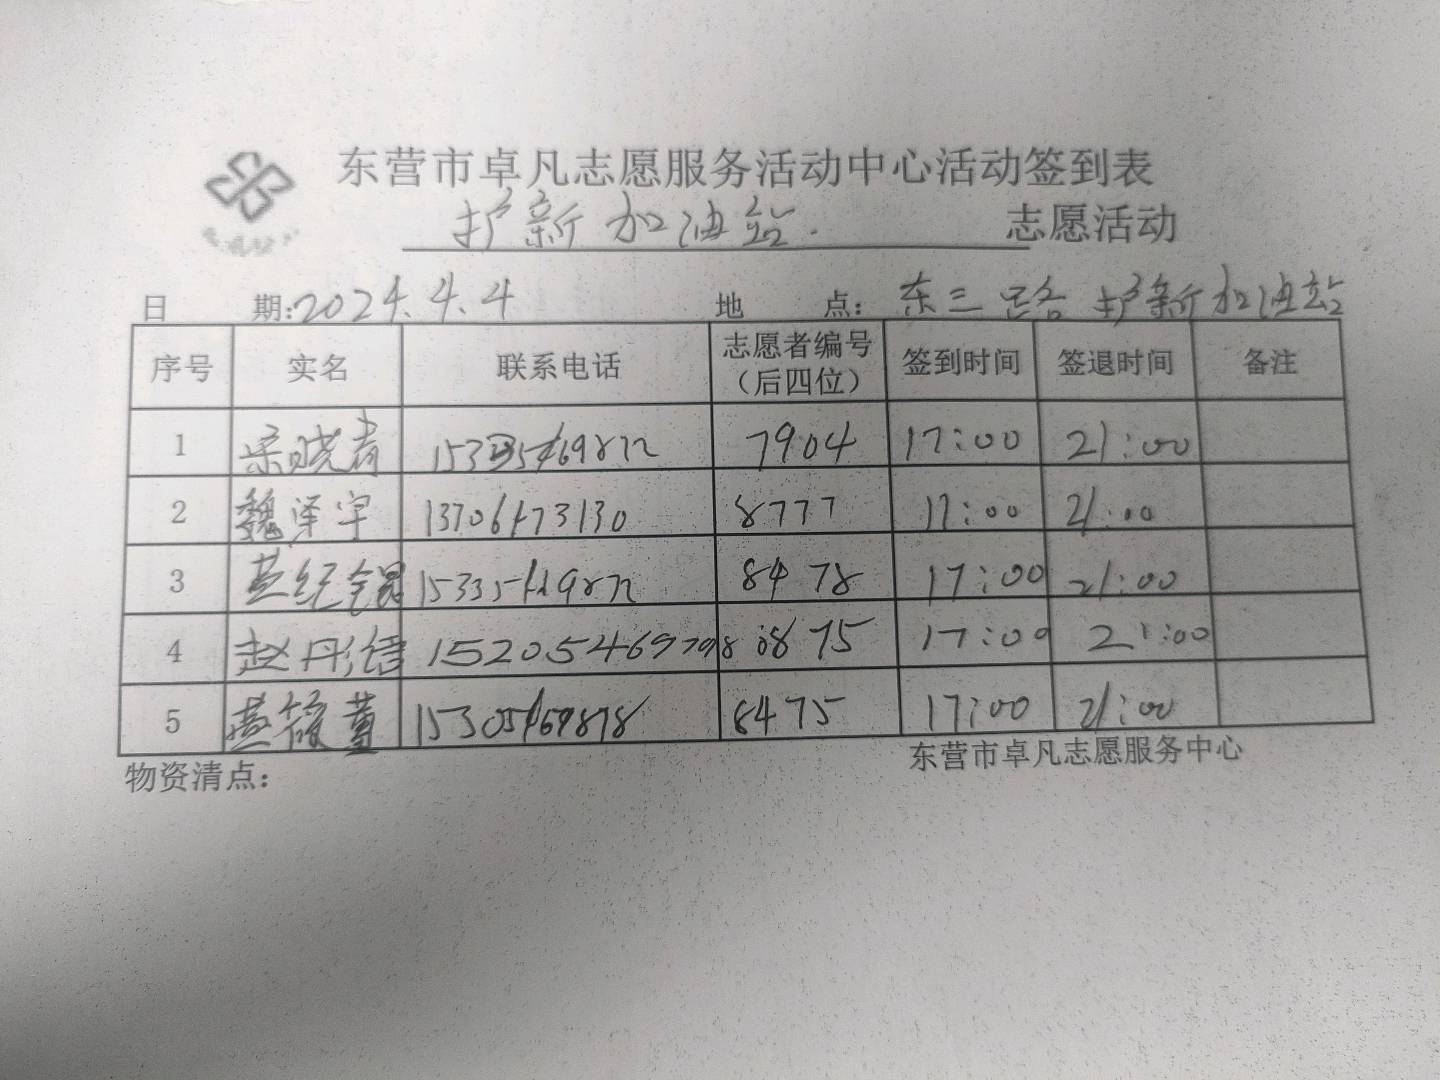 东营市卓凡志愿服务活动中心活动签到表
护新加油站. 志愿活动
日 期:2024.4.4 地 点: 东三路护新加油站
序号 实名 联系电话 志愿者编号（后四位） 签到时间 签退时间 备注
1 7904 17:00 21:00
2 魏泽宇 8777 17:00 21:00
3 8478 17:00 21:00
4 赵丹 8875 17:00 21:00
5 燕筱 15305469878 8475 17:00 21:00
物资清点: 东营市卓凡志愿服务中心